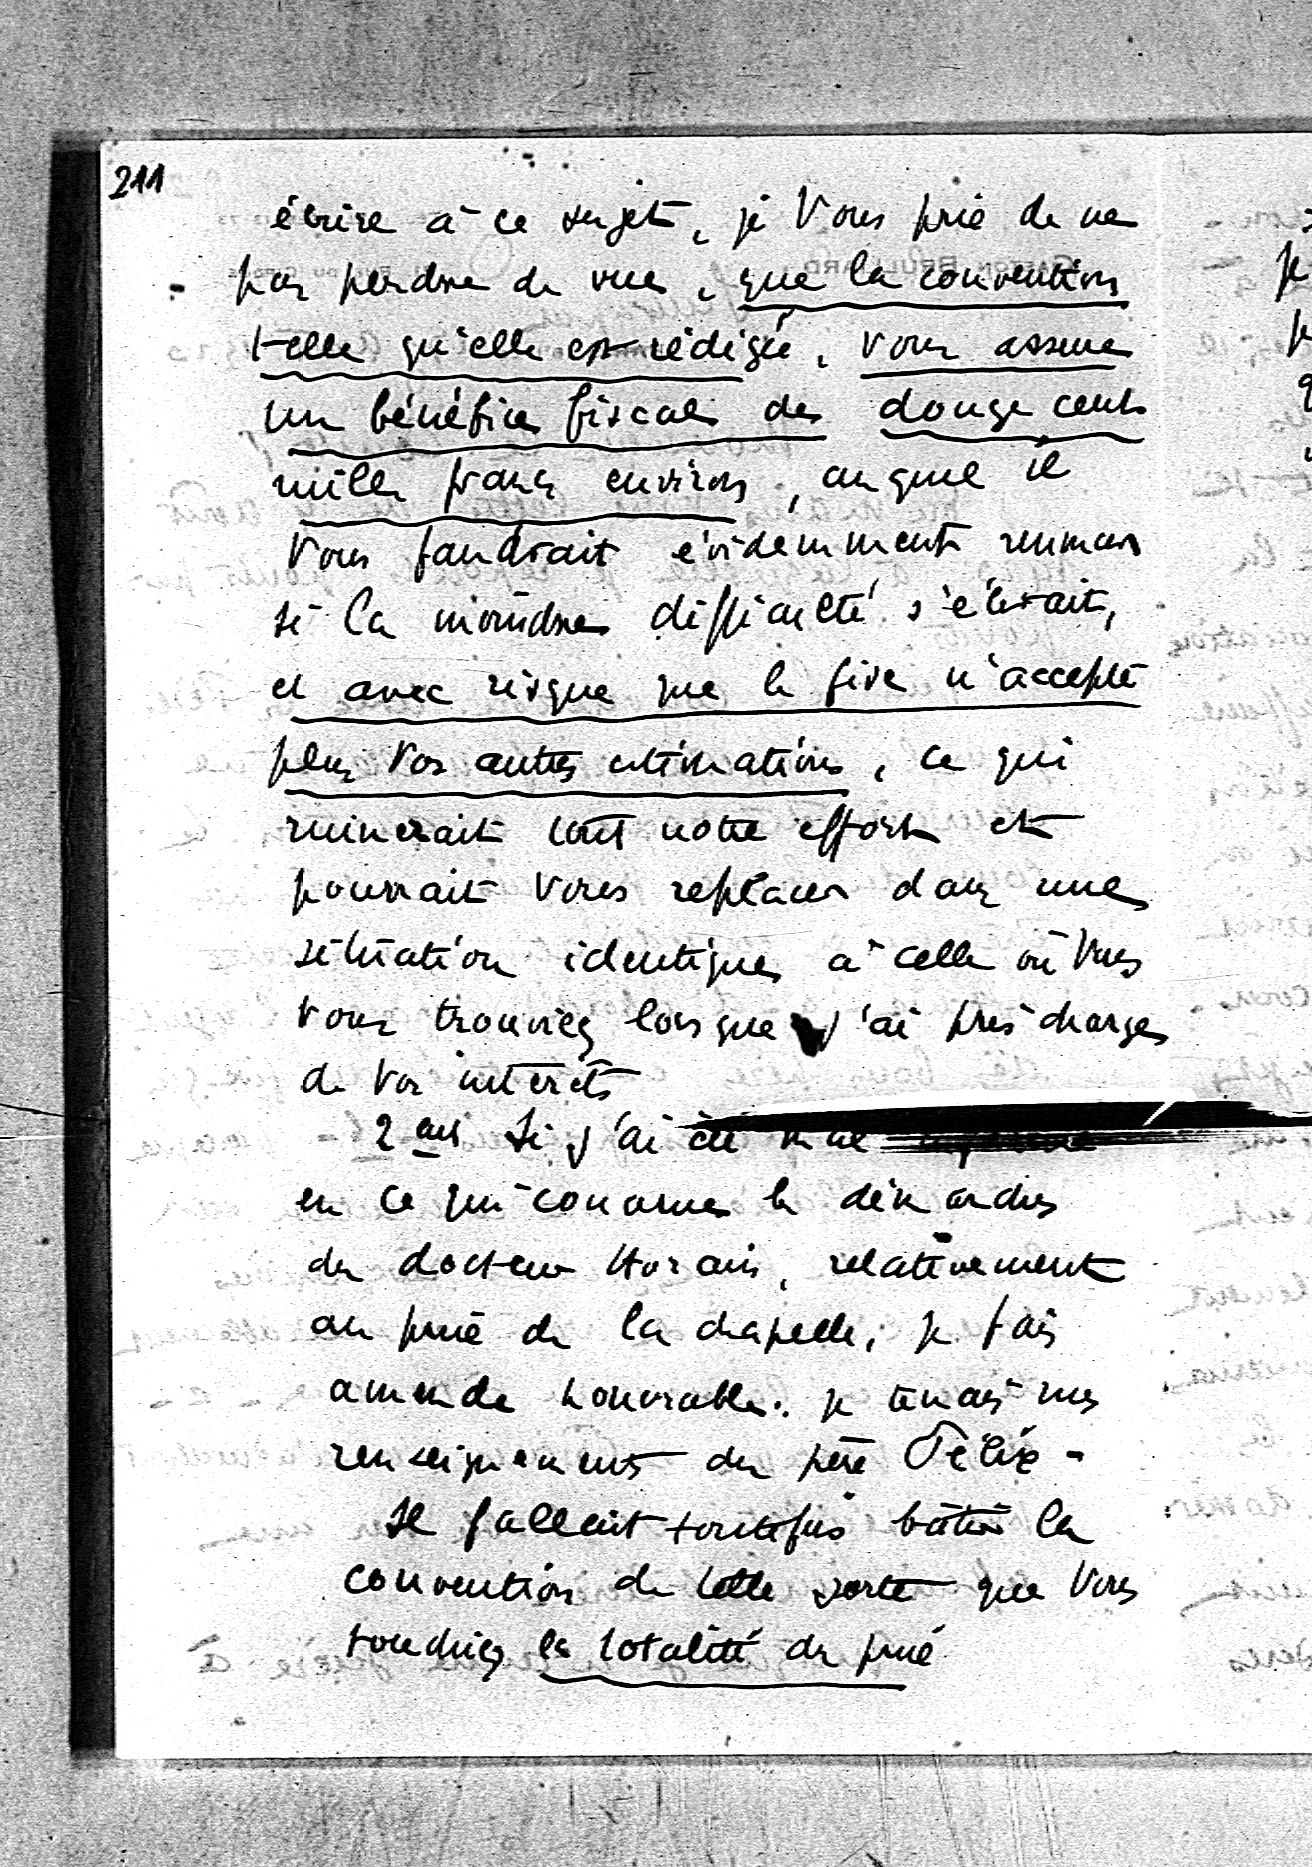 211
écrire à ce sujet, je Vous prie de ne
pas perdre de vue, que la convention
telle qu'elle est rédigée, vous assure
un bénéfice fiscal de douze cent
mille francs environ, auquel il
Vous faudrait évidemment renoncer
si la moindre difficulté s'élevait,
et avec risque que le fisc n'accepte
plus vos autres estimations, ce qui
ruinerait tout notre effort et
pourrait vous replacer dans une
situation identique à celle où Vous
vous trouviez lorsque j'ai pris charge
de vos intérêts
2 ent Si j'ai été mal
en ce qui concerne les démarches
du docteur relativement
au prix de la chapelle, je fais
amende honorable. je tenais mes
renseignements du père Félix -
Il fallait toutefois bâtir la
convention de telle sorte que Vous
touchiez la totalité du prix